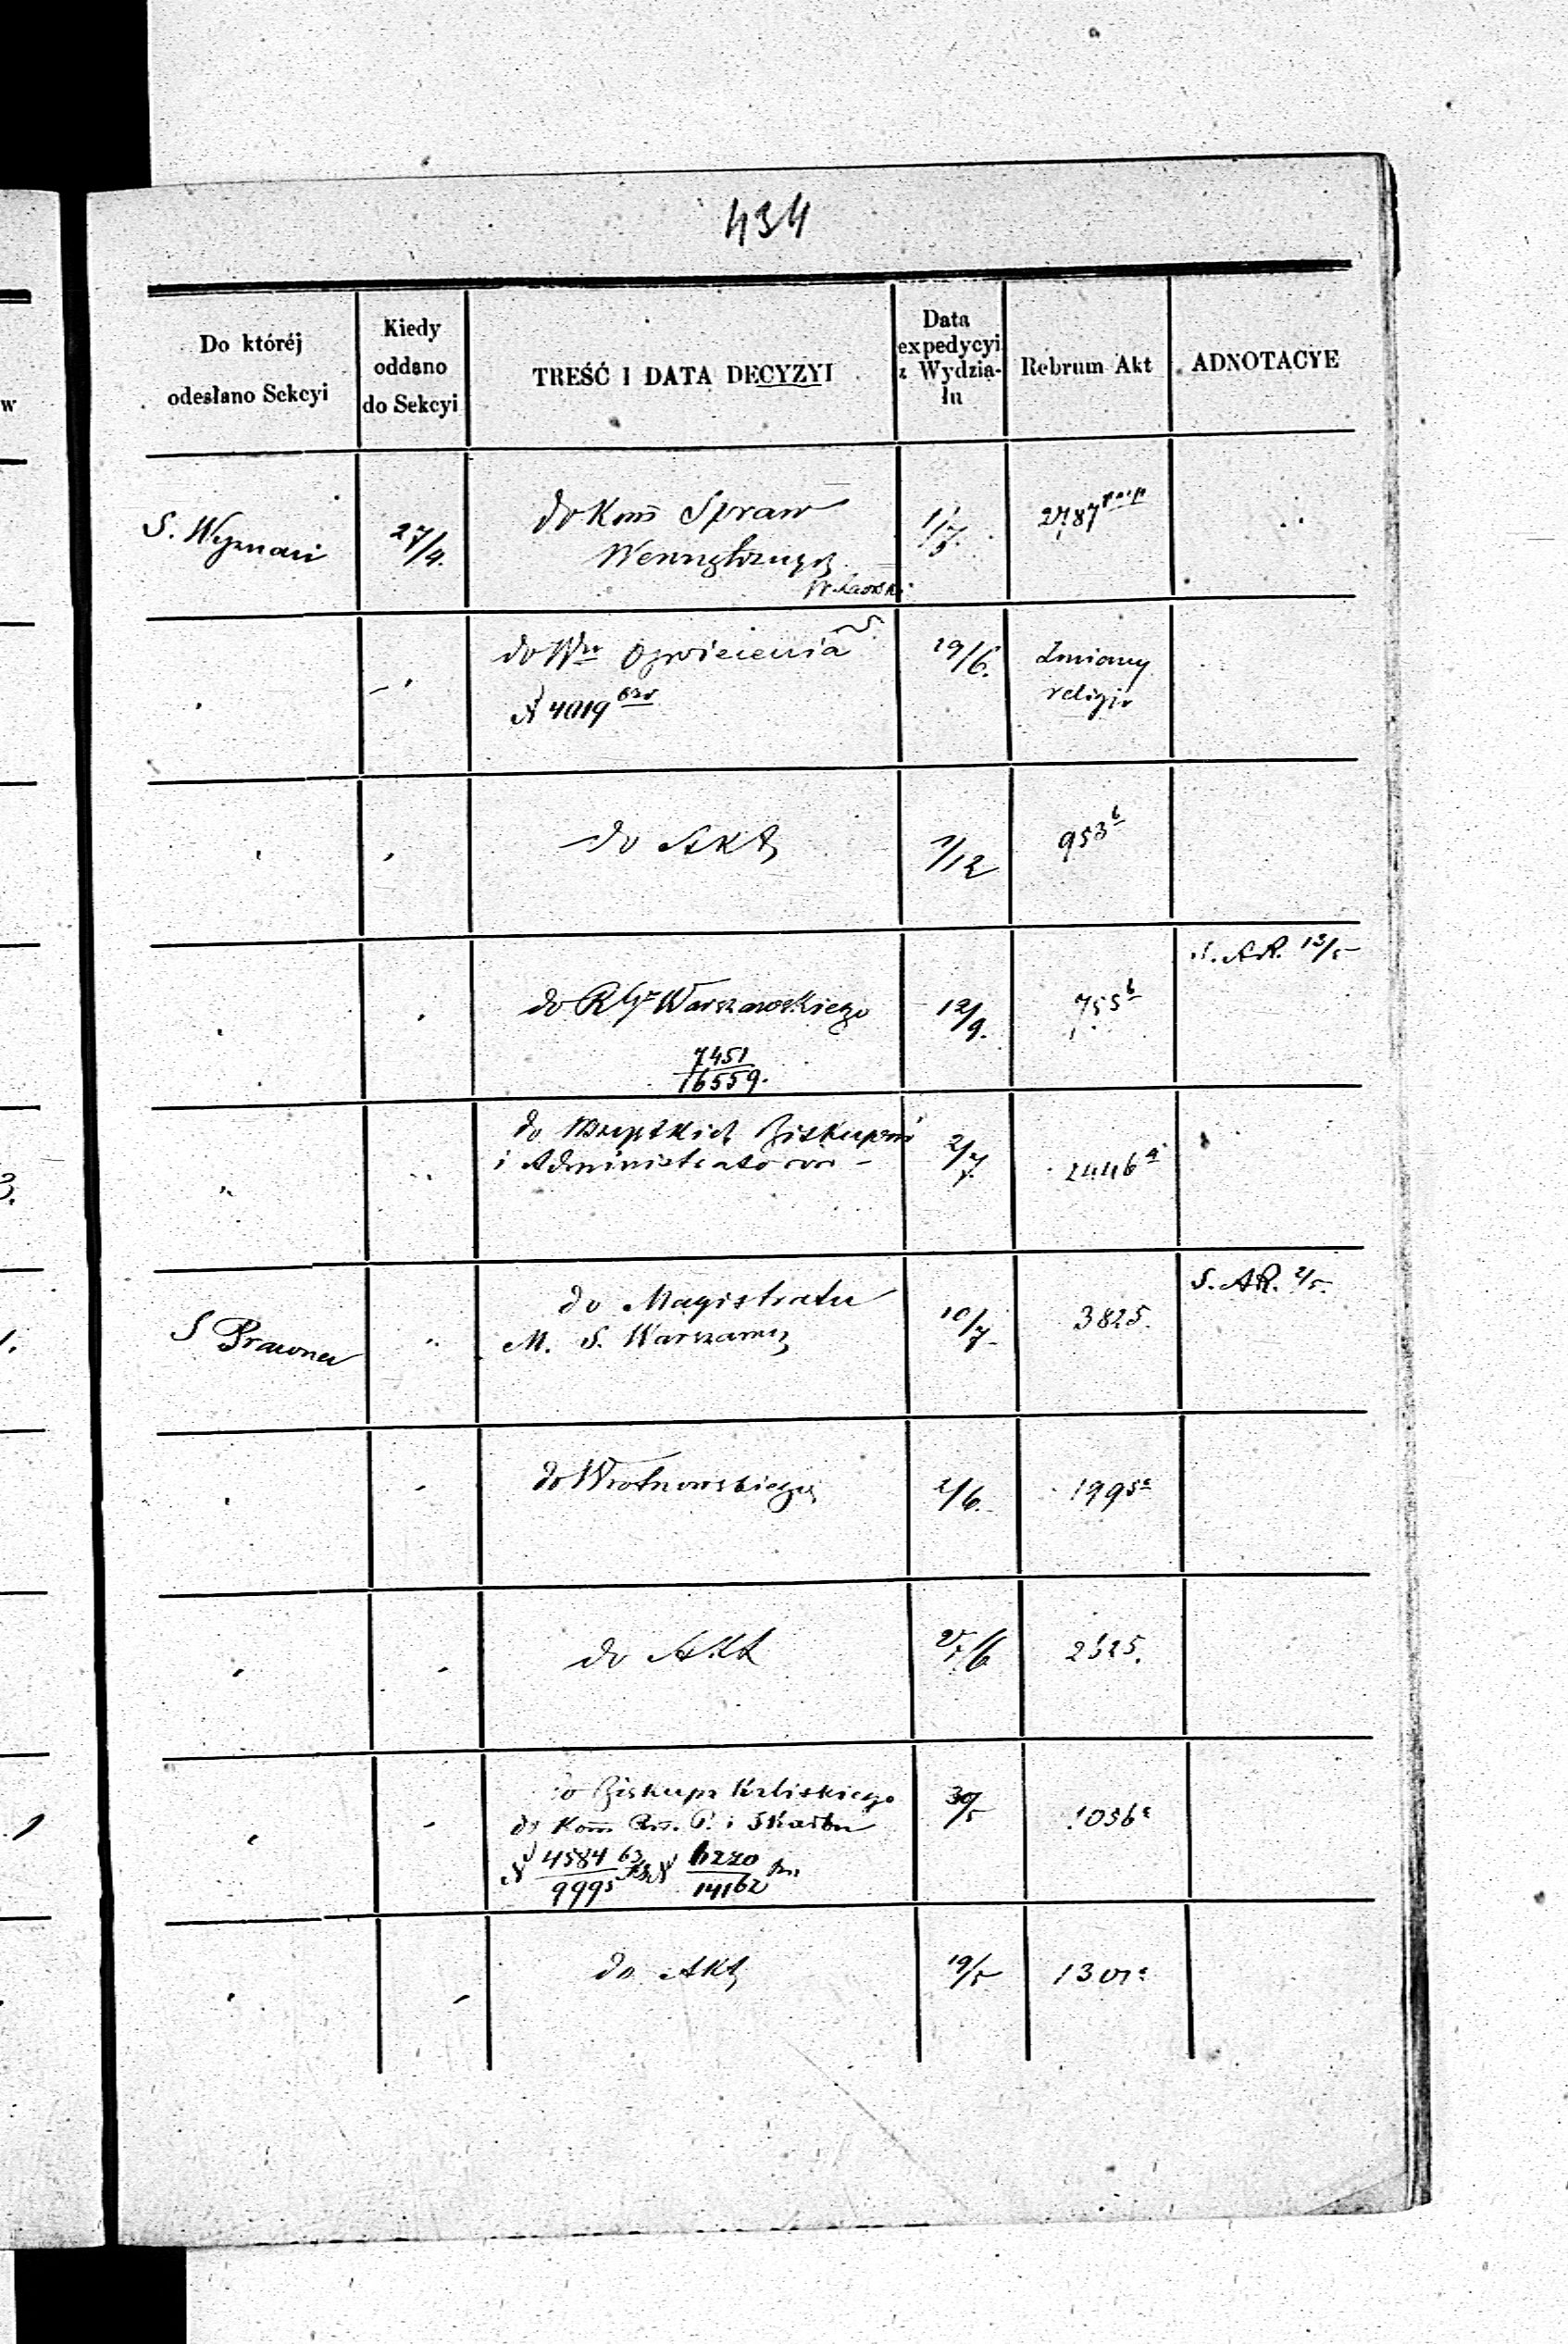 434
Do któréj
odesłano Sekcyi
Kiedy
oddano
do Sekcyi
TREŚĆ I DATA DECYZYI
Data
expedycyi
z Wydzia-
łu
Rebrum Akt
ADNOTACYE
S. Wyznań
27/4.
do Kom Spraw
Wewnętrznych
1/7.
2787
do Wn Oświecenia
N 4019
19/6.
Zmiany
religji
do Akt
1/12
953 b
S. AR. 13/5
do R Gr Warszawskiego
7451
16559.
12/9.
755 b
do Wszystkich Biskupów
i Administratorów
2/7
2446 a
S. AR. 2/5.
S Prawna
do Magistratu
M. S. Warszawy
10/7
3825.
do Wrotnowskiego
2/6.
1995 a
do Akt
/6
2525.
do Biskupa Kaliskiego
do Kom P. i Skarbu
N 4584 63 N 6220
9995 14162
30/5
1056 a
do Akt
19/5
1301 a